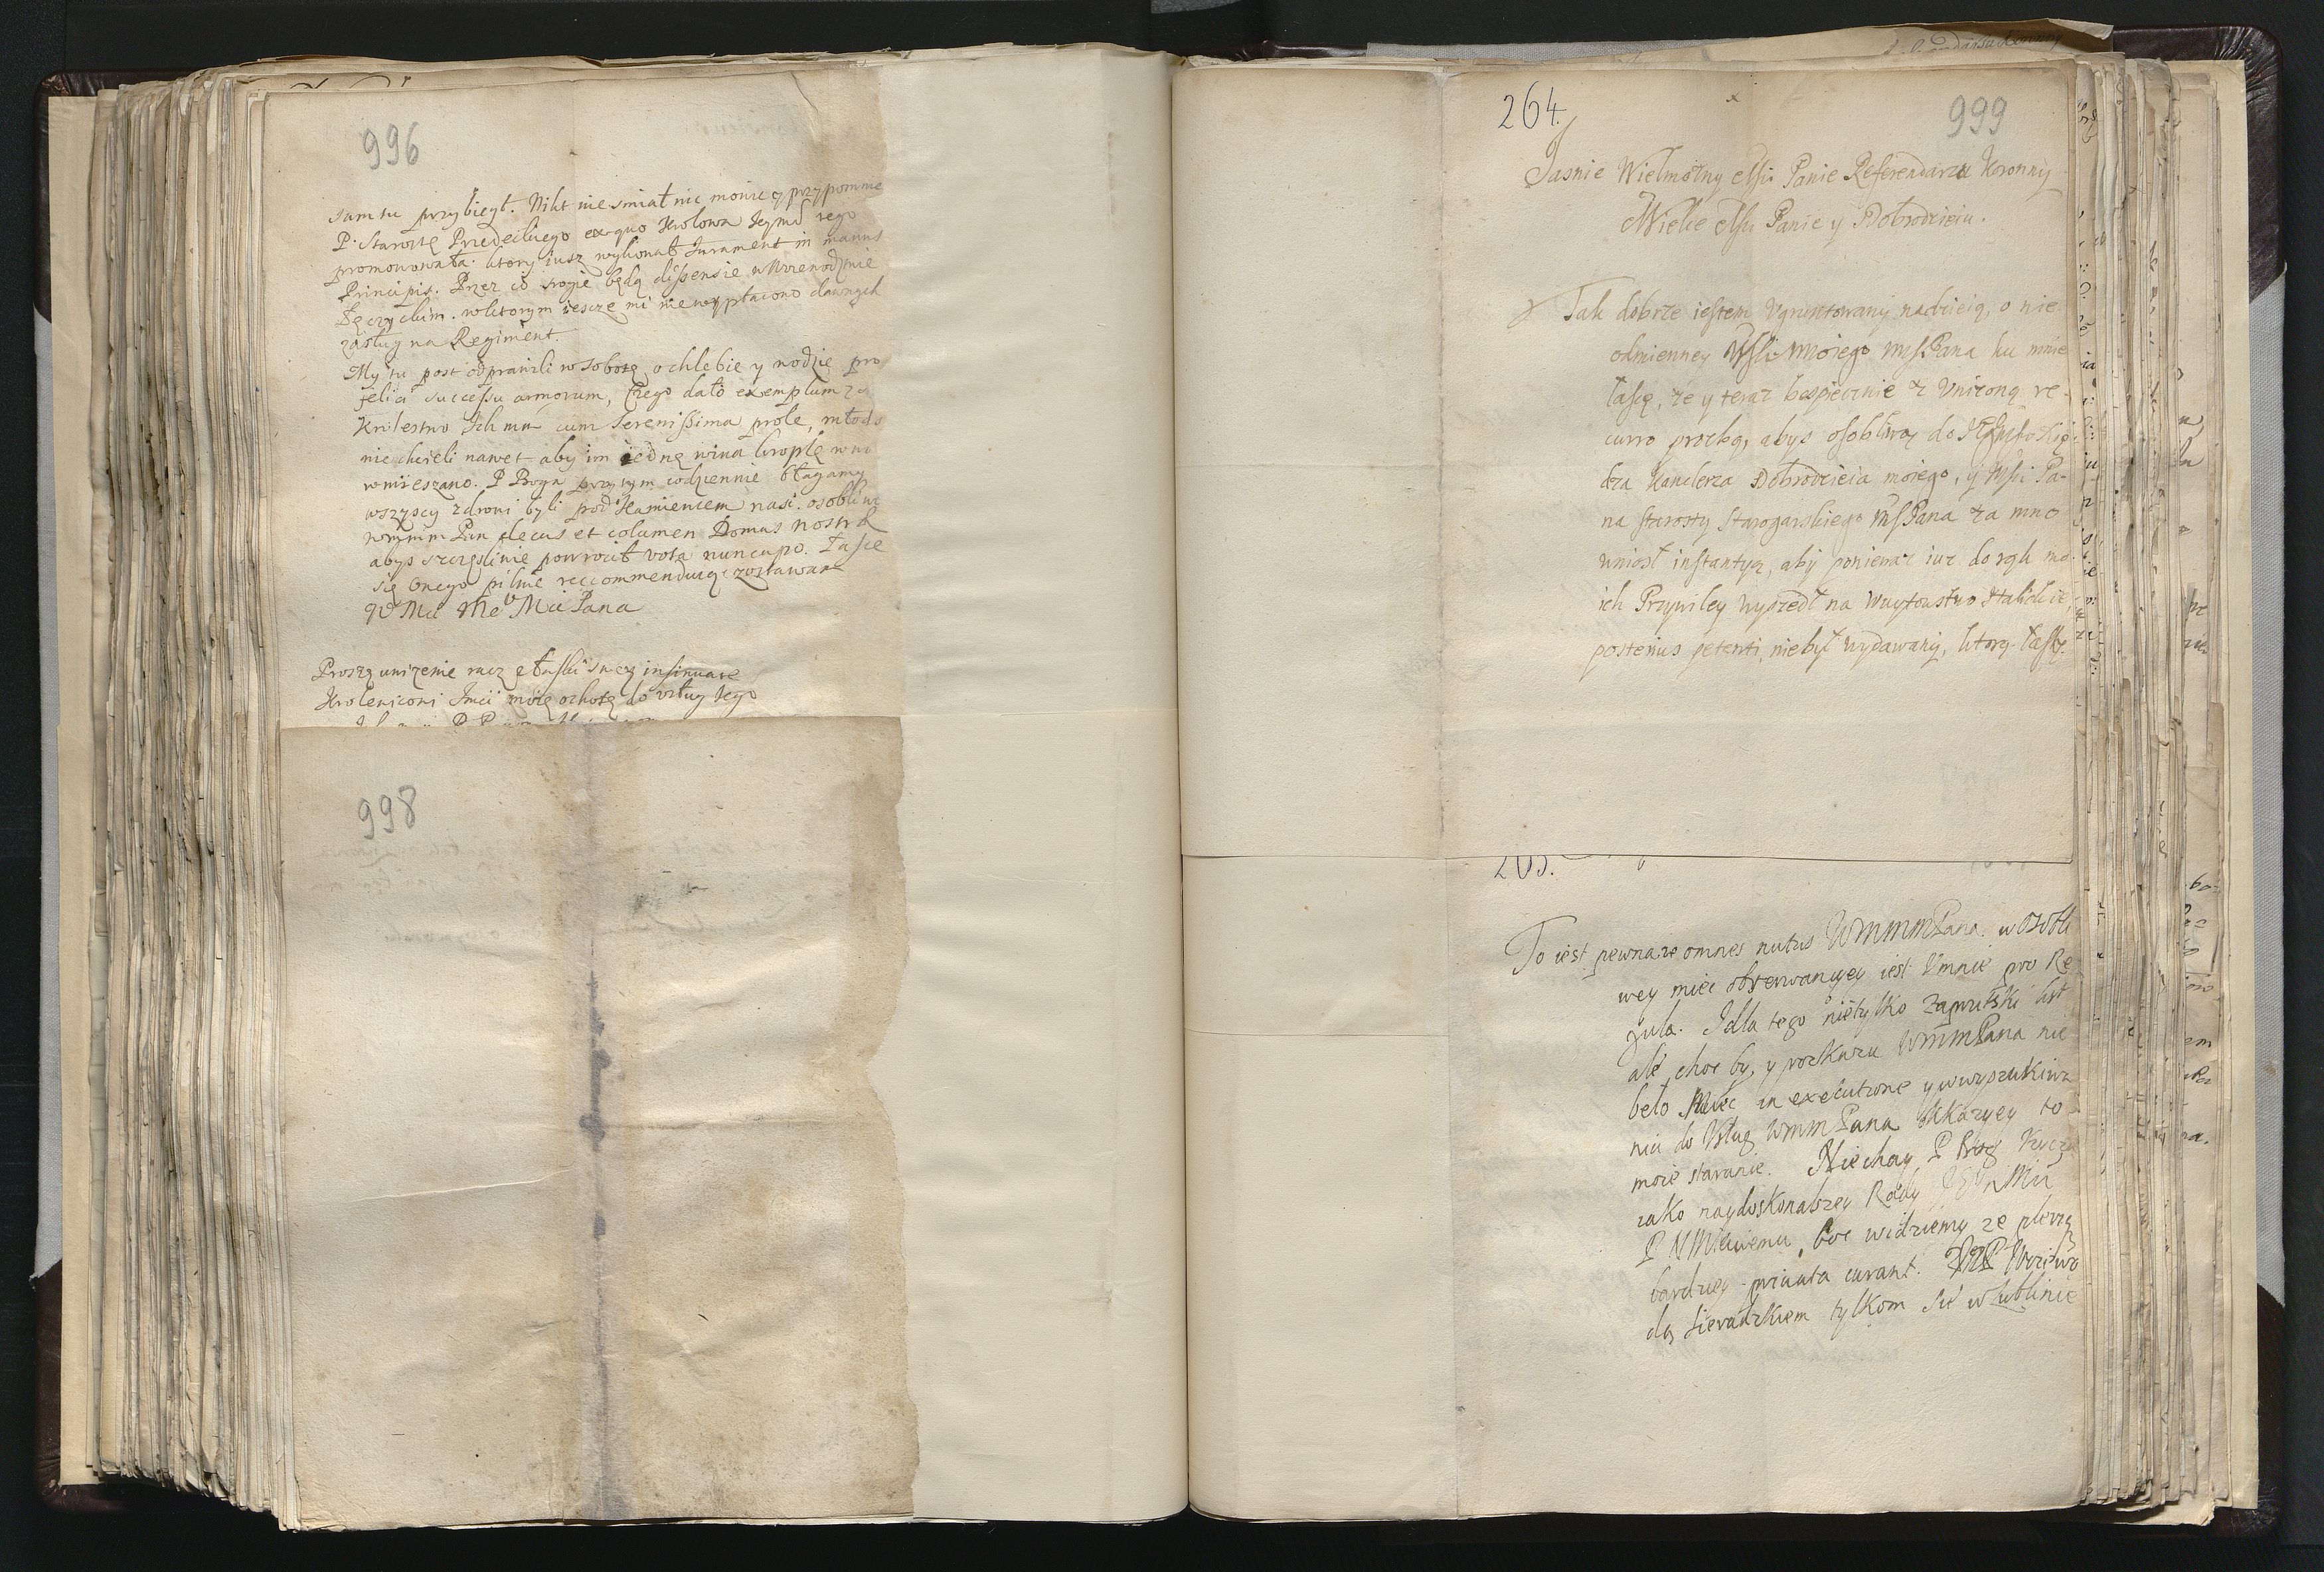 996
sam tu przybiegł. Nikt nie smiał nic mowić y przypomnie
P. Starostę Przedeckiego ex quo Krolowa Jeymć tego
promonowała. ktory iusz wykonał Jurament in manus
Principis. Przez co srogie będą dissensie w Woiewodztwie
Łęczyckim. w ktorym iescze mi nie wypłacono dawnych
zasług na Regiment.
My tu post odprawili w Sobotę o chlebie y wodzie pro
felici successu armorum, Czego dało exemplum
Krolestwo Ich mm cum Serenissima prole, młods
nie chcieli nawet aby im iednę wina kroplę
wmieszano. P Boga przytym codziennie błagamy
wszyscy zdrowi byli pod Kamiencem nasi. osobliw
wmmm Pan decus et columen Domus nostræ
abys szczęsliwie powrocił vota nuncupo. Łasce
się Onego pilnie reccommenduiąc zostawam
Mci Pana
Proszę unizenie racz z łaski swey insinuare
Krolewicowi Jmci moię ochotę do usług Jego
998
264.
999
Jasnie Wielmożny Msci Panie Referendarzu Koronny
Wielce Msci Panie y Dobrodzieiu.
Tak dobrze iestem Ugruntowany nadzieią, o nie
odmienney WMsci Moiego MscPana ku mnie
łascę, że y teraz bespiecznie z Unizoną re-
curro prozbą, abys osobliwą do Xię
dza Kanclerza Dobrodzieia moiego, y Msci Pa-
na Starosty Starogarskiego MscPana za mno
wniosł instantyą, aby poniewaz iuz do rąk mo
ich Przywiley wyszedł na Wuytowstwo Halickie,
posterius petenti, nie był wydawany, ktorą łaskę
265.
To iest pewna ze omnes nutus WMMMPana w osobli
wey mieć obserwancyey iest Umnie pro Re
gula. I dla tego nietylko Zaprutski list
ale choc by y rozkazu WMMMPana nie
beło Mieć in executione y w wyszukiwa
niu do Usług WMMPana okazyey to
moie staranie. Niechay P Bog życzy
iako naydoskonalszey Rady
P N Miłosciwemu, boć widziemy ze plerzq
bardziey privata curant. Woiewo
dą Sieradzkiem tylkom sie w Lublinie